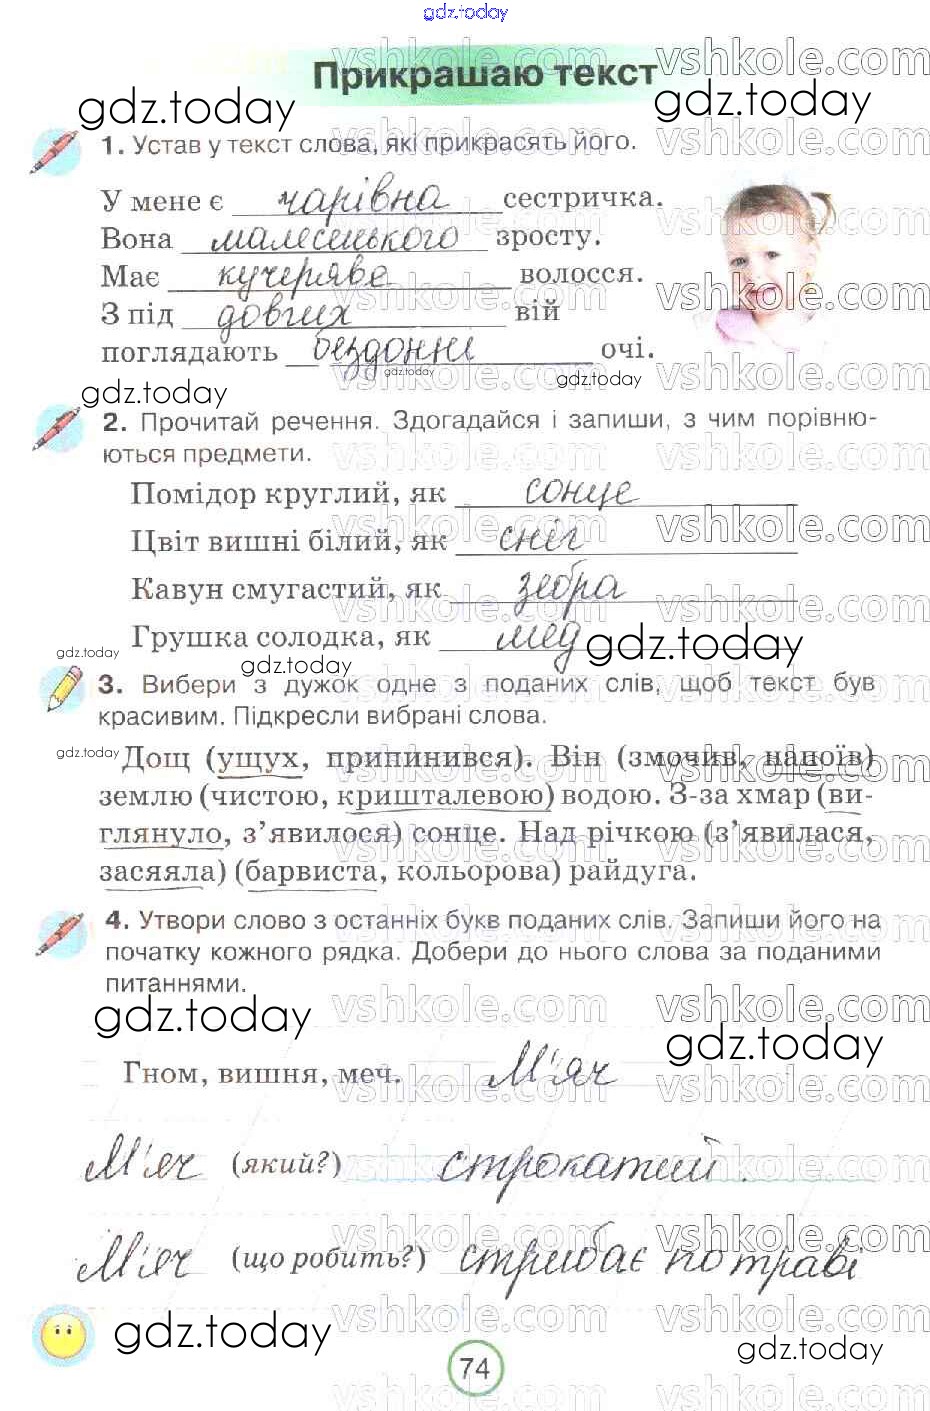 gdz.today
Прикрашаю текст
1. Устав у текст слова, які прикрасять його.
У мене є чарівна сестричка.
Вона малесенького зросту.
Має кучеряве волосся.
З під довгих вій
поглядають бездонні очі.
2. Прочитай речення. Здогадайся і запиши, з чим порівню-
ються предмети.
Помідор круглий, як сонце
Цвіт вишні білий, як сніг
Кавун смугастий, як зебра
Грушка солодка, як мед
3. Вибери з дужок одне з поданих слів, щоб текст був
красивим. Підкресли вибрані слова.
Дощ (ущух, припинився). Він (змочив, напоїв)
землю (чистою, кришталевою) водою. З-за хмар (ви-
глянуло, з’явилося) сонце. Над річкою (з’явилася,
засяяла) (барвиста, кольорова) райдуга.
4. Утвори слово з останніх букв поданих слів. Запиши його на
початку кожного рядка. Добери до нього слова за поданими
питаннями.
Гном, вишня, меч. М'яч
М'яч (який?) строкатий.
М'яч (що робить?) стрибає по траві
74
gdz.today
vshkole.com